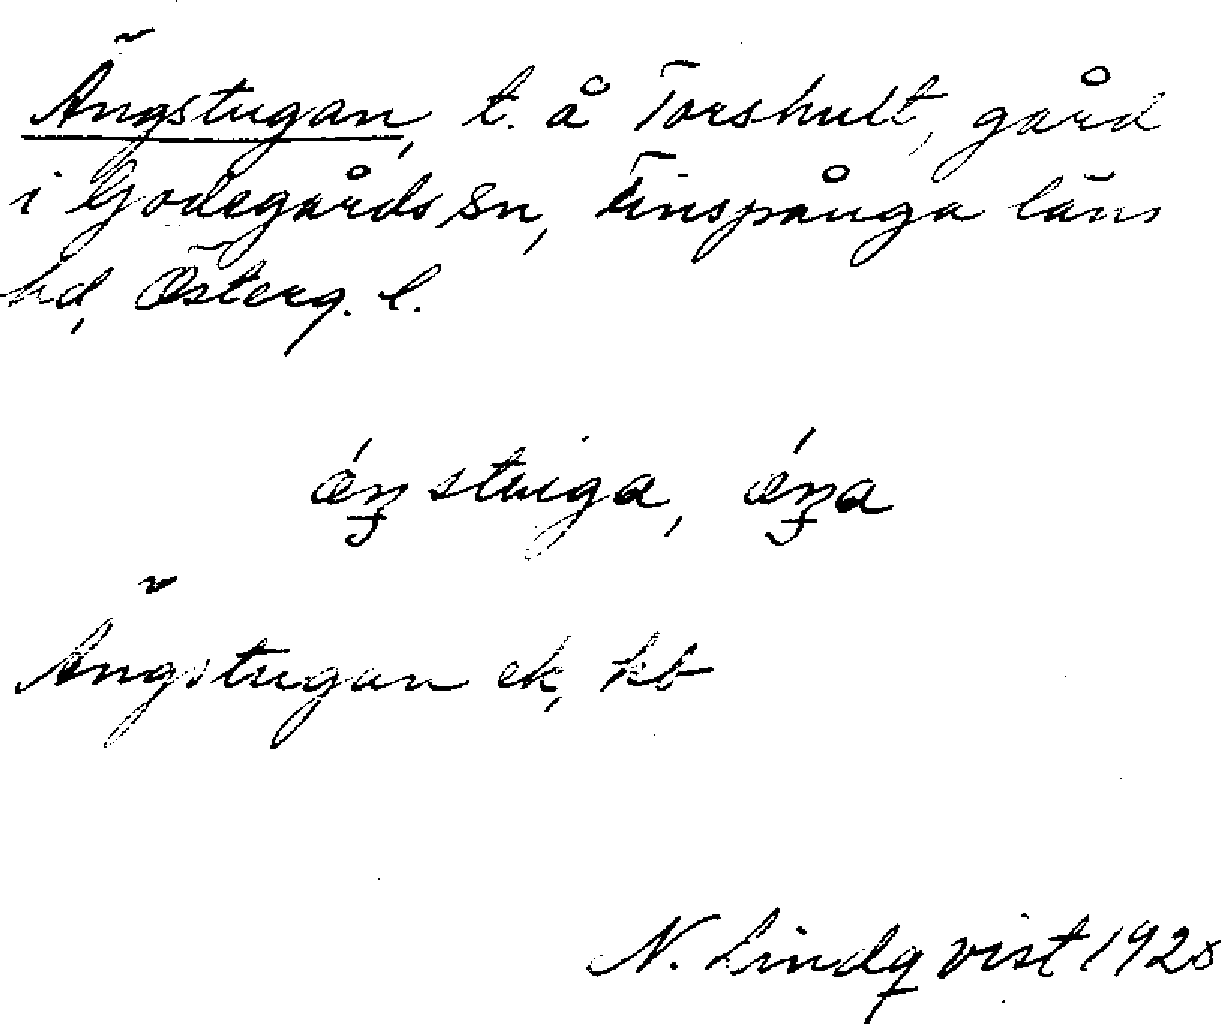 Ängstugan, t. å Torshult, gård
i Godegårds sn, Finspånga läns
hd, Österg. l.
ǽŋstuga, ǽŋa
Ängstugan ek, kb
N. Lindqvist 1928